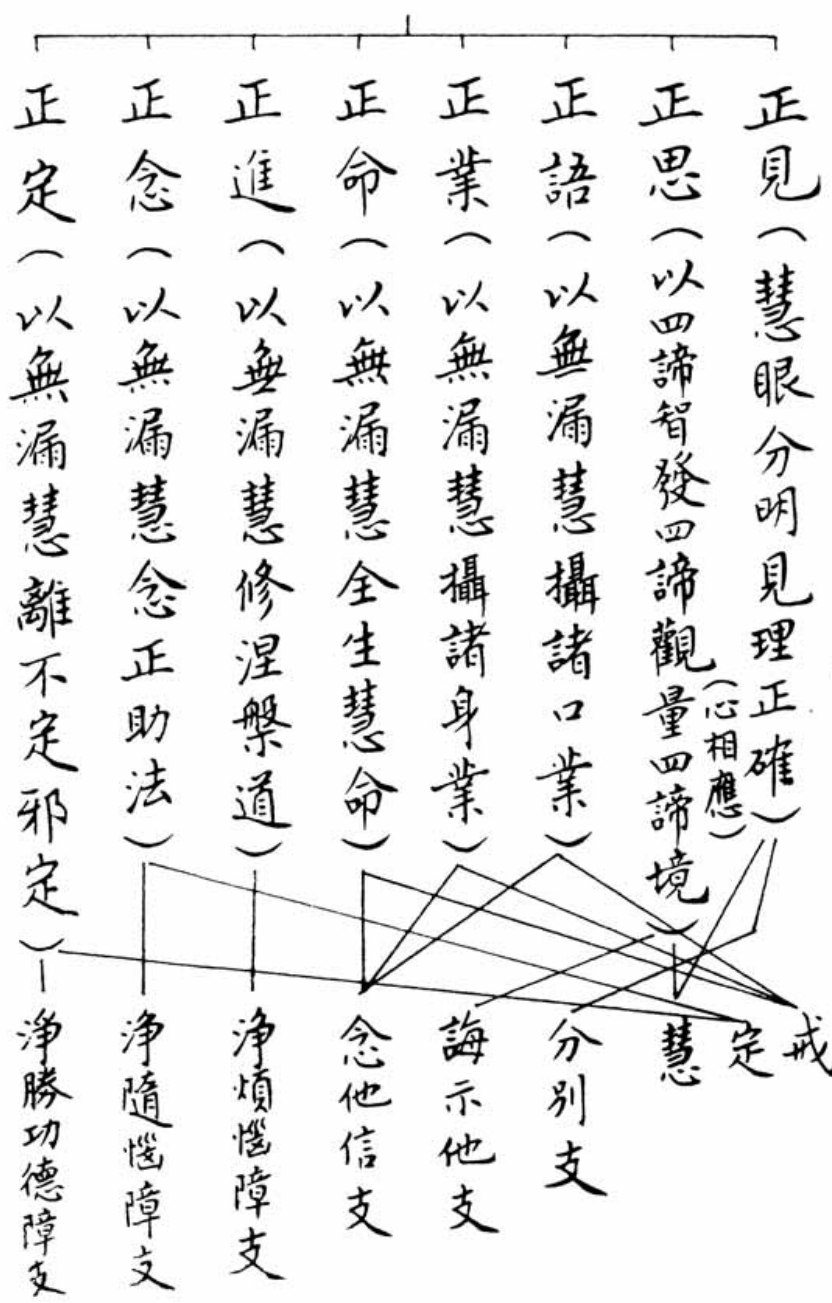 正見(慧眼分明見理正確)
正思(以四諦智發四諦觀量四諦境)
(心相應)
正語(以無漏慧攝諸口業)
正業(以無漏慧攝諸身業)
正命(以無漏慧全生慧命)
正進(以無漏慧修涅槃道)
正念(以無漏慧念正助法)
正定(以無漏慧離不定邪定)
戒
定
慧
分別支
誨示他支
念他信支
淨煩惱障支
淨隨惱障支
淨勝功德障支